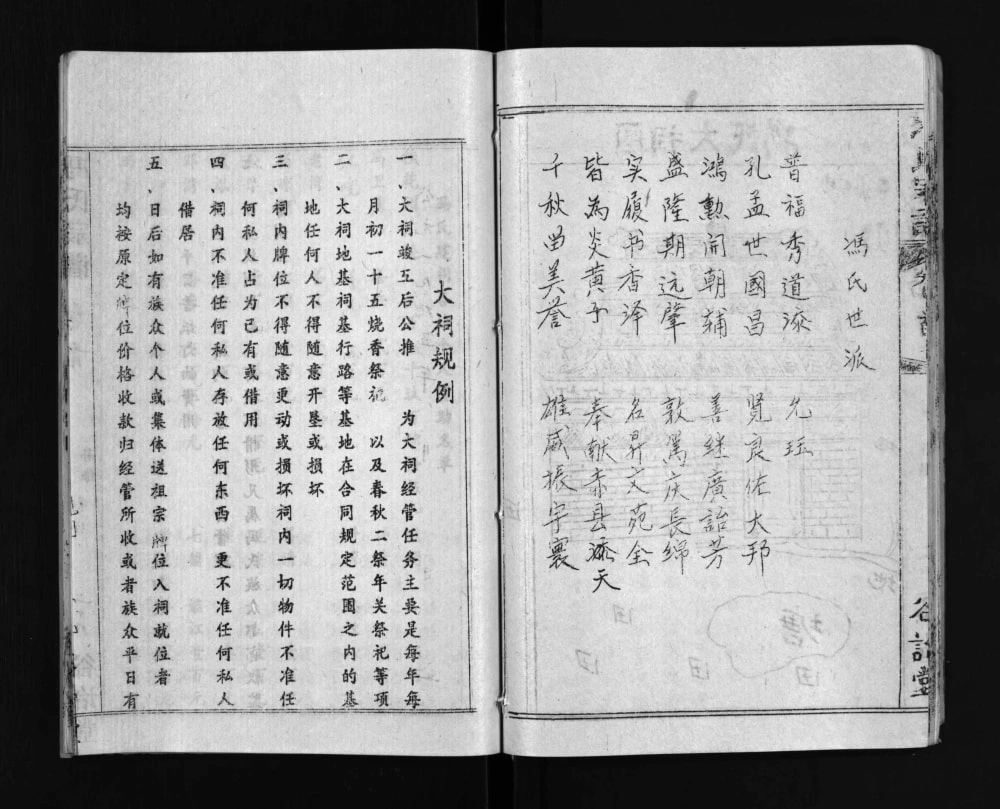 馮氏世派
普福秀道添 允珏
孔孟世國昌 贤良佐大邦
鴻勲開朝輔 善继廣詒芳
盛隆期远肇 敦篤庆長綿
实履书香泽 名昇文苑全
皆為炎黄子 奉献赤县添天
千秋留美誉 雄威振宇寰
谷詒堂
大祠规例
一、大祠竣工后公推 为大祠经管任务主要是每年每
月初一十五烧香祭祀 以及春秋二祭年关祭祀等项
二、大祠地基祠基行路等基地在合同规定范围之内的基
地任何人不得随意开垦或损坏
三、祠内牌位不得随意更动或损坏祠内一切物件不准任
何私人占为己有或借用
四、祠内不准任何私人存放任何东西 更不准任何私人
借居
五、日后如有族众个人或集体送祖宗牌位入祠就位者
均按原定牌位价格收款归经管所收或者族众平日有